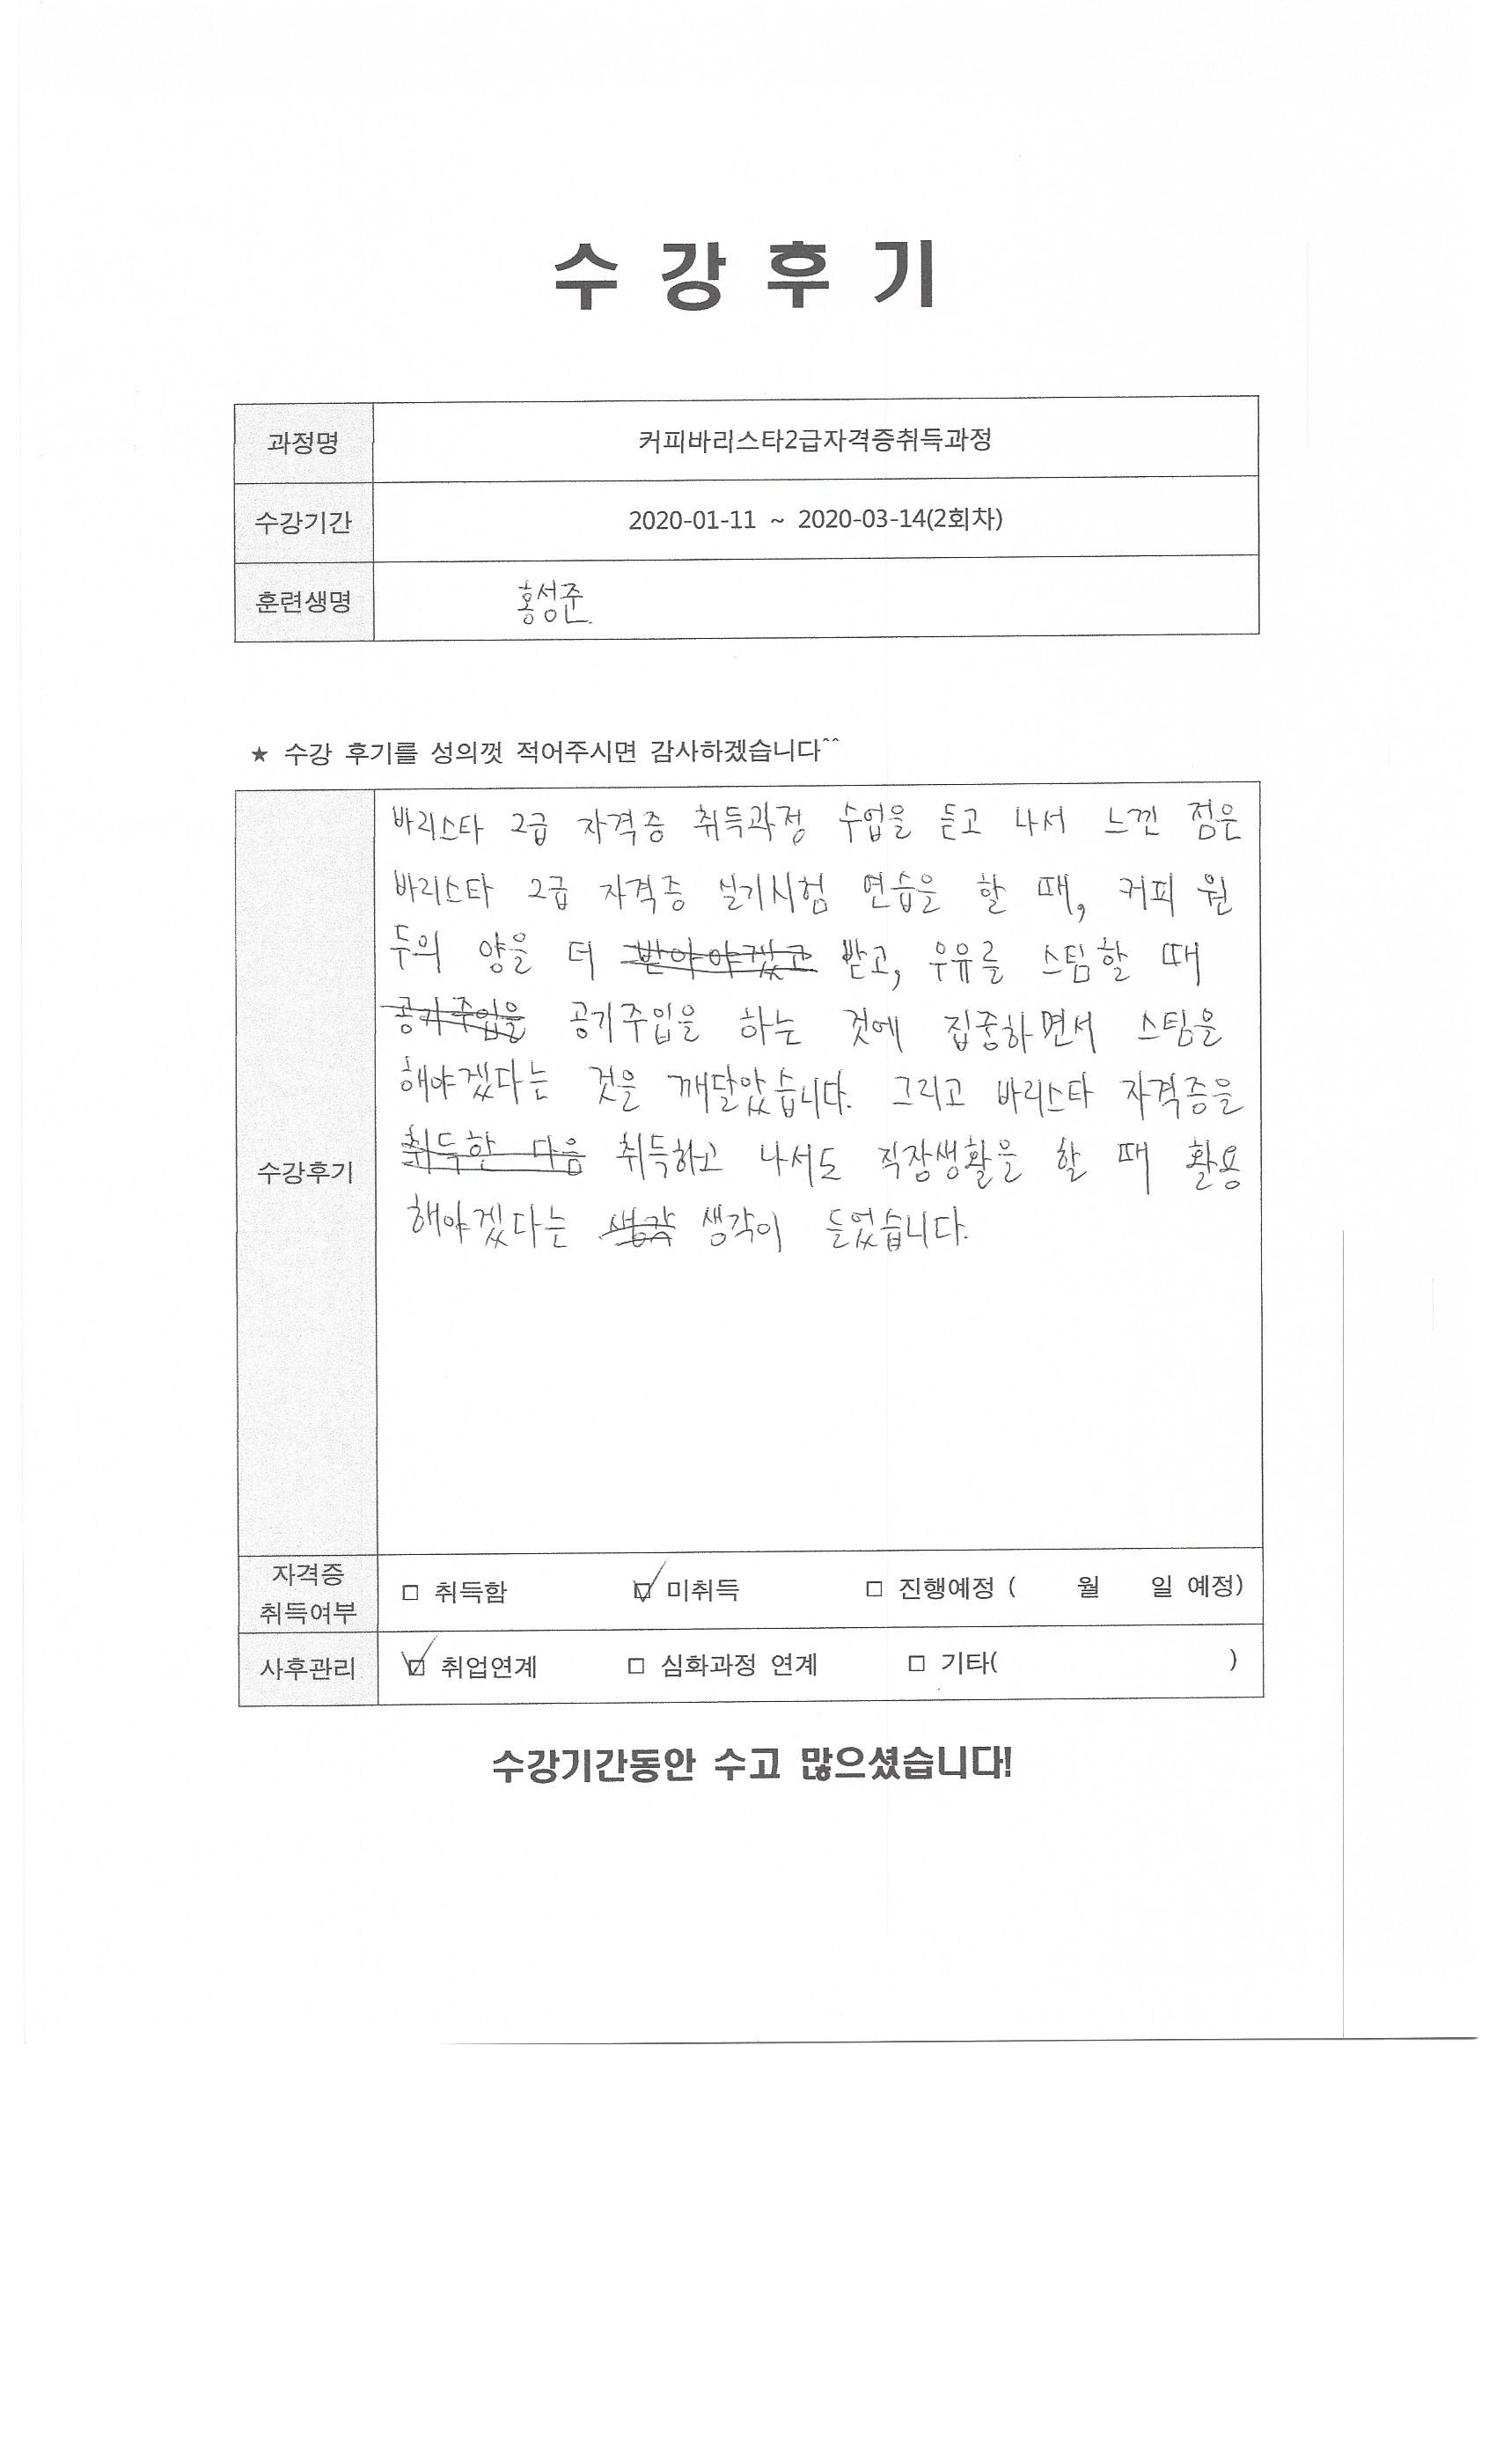 수 강 후 기
과정명 커피바리스타2급자격증취득과정
수강기간 2020-01-11 ~ 2020-03-14(2회차)
훈련생명 홍성준
★ 수강 후기를 성의껏 적어주시면 감사하겠습니다^^
수강후기
바리스타 2급 자격증 취득과정 수업을 듣고 나서 느낀 점은
바리스타 2급 자격증 실기시험 연습을 할 때, 커피 원
두의 양을 더 받아야겠고 받고, 우유를 스팀할 때
공기주입을 공기주입을 하는 것에 집중하면서 스팀을
해야겠다는 것을 깨달았습니다. 그리고 바리스타 자격증을
취득한 다음 취득하고 나서도 직장생활을 할 때 활용
해야겠다는 생각 생각이 들었습니다.
자격증
취득여부
□ 취득함 ☑ 미취득 □ 진행예정 ( 월 일 예정)
사후관리 ☑ 취업연계 □ 심화과정 연계 □ 기타( )
수강기간동안 수고 많으셨습니다!